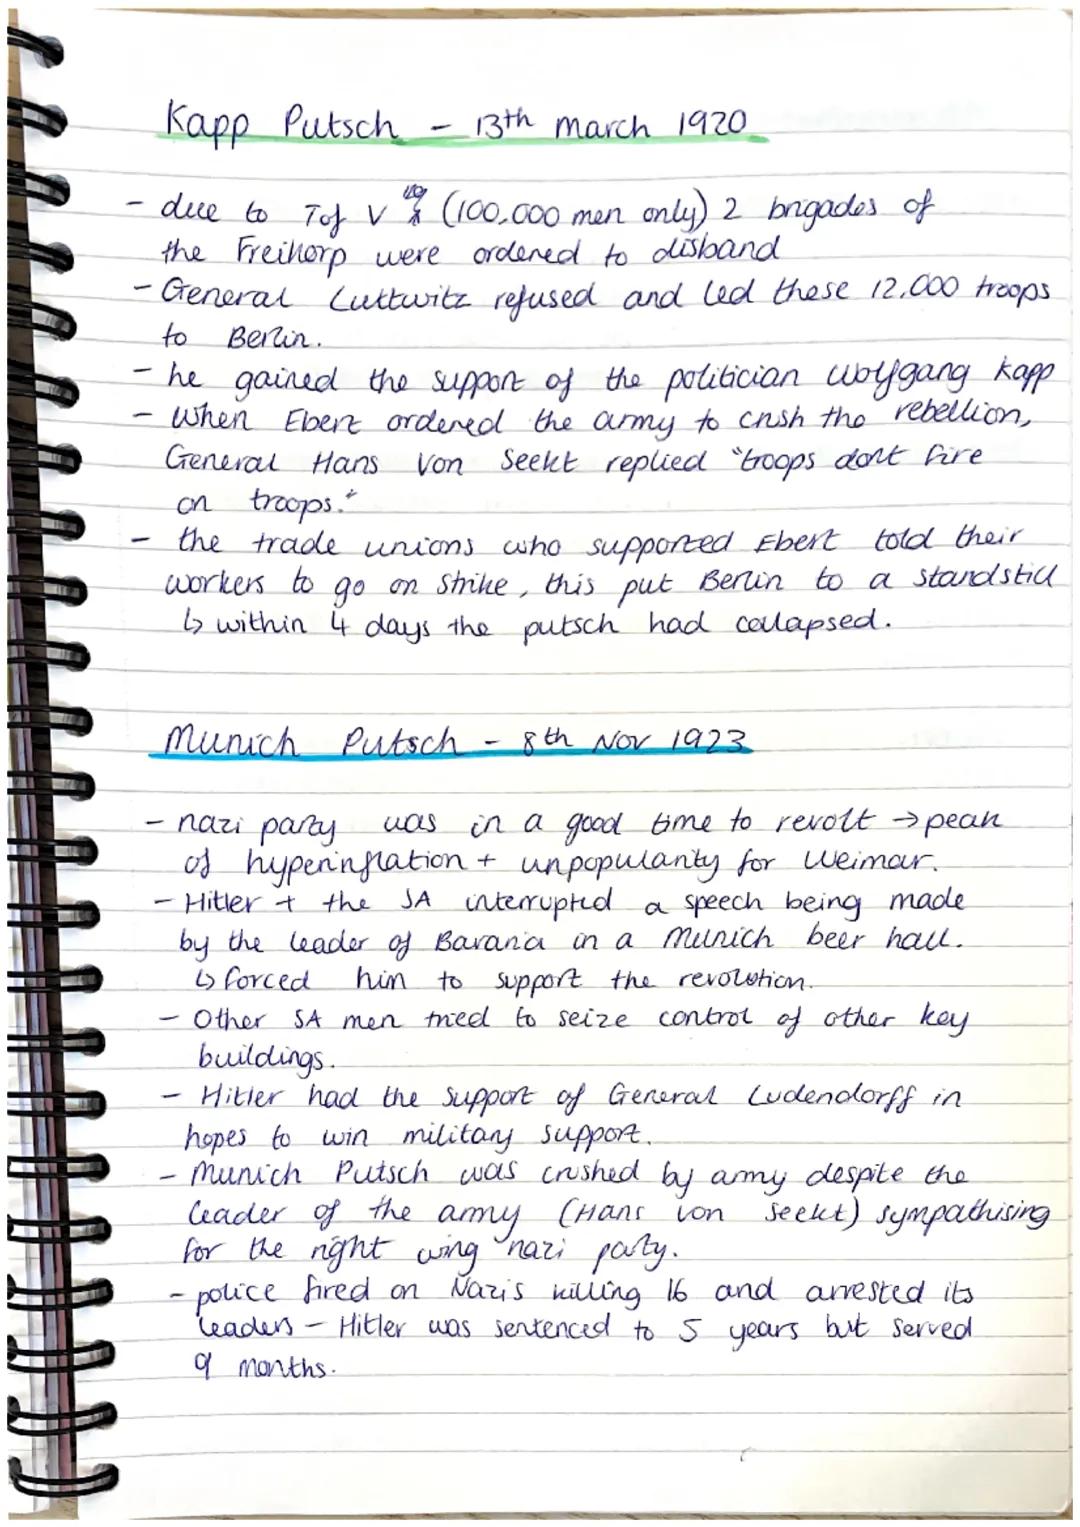 Kapp Putsch - 13th march 1920
- due to T of V (100,000 men only) 2 brigades of
the Freikorp were ordered to disband
- General Luttwitz refused and led these 12,000 troops
to Berlin.
- he gained the support of the politician Wolfgang Kapp
- when Ebert ordered the army to crush the rebellion,
General Hans Von Seekt replied "troops dont fire
on troops."
- the trade unions who supported Ebert told their
workers to go on strike, this put Berlin to a standstill
↳ within 4 days the putsch had collapsed.
Munich Putsch - 8th Nov 1923
- nazi party was in a good time to revolt → peak
of hyperinflation + unpopularity for Weimar.
- Hitler + the SA interrupted a speech being made
by the leader of Bavaria in a Munich beer hall.
↳ forced him to support the revolution.
- Other SA men tried to seize control of other key
buildings.
- Hitler had the support of General Ludendorff in
hopes to win military support.
- Munich Putsch was crushed by army despite the
leader of the army (Hans von Seekt) sympathising
for the right wing nazi party.
- police fired on Nazis killing 16 and arrested its
leaders - Hitler was sentenced to 5 years but served
9 months.